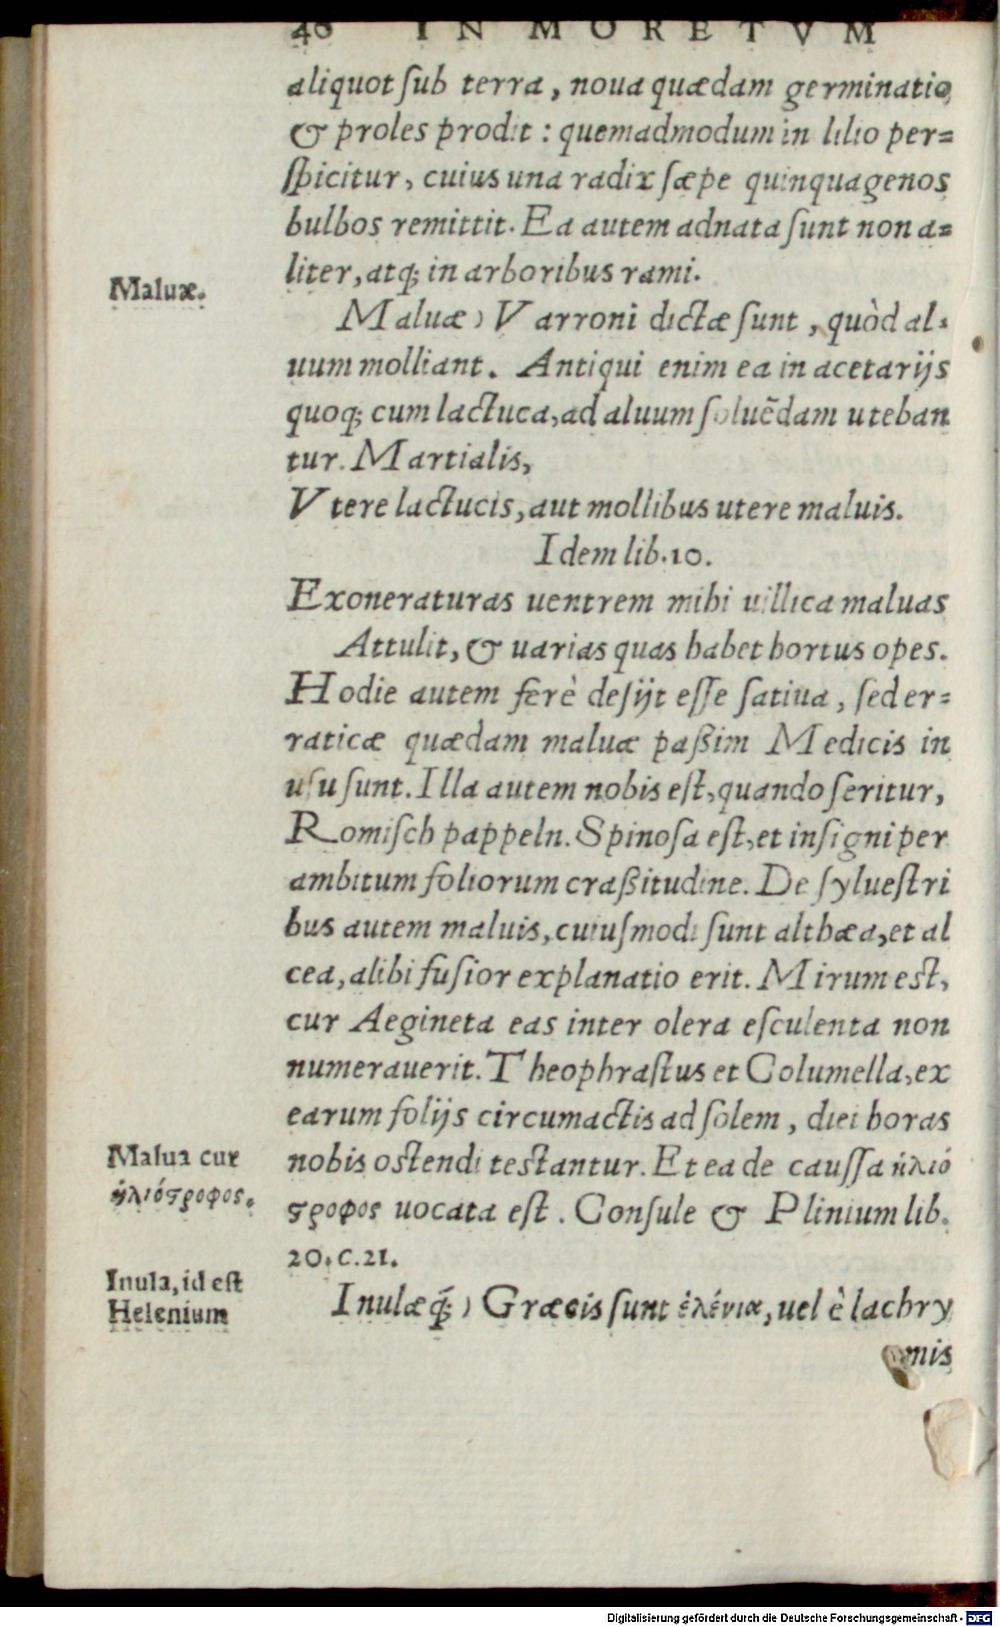 40 IN MORETVM
aliquot ſub terra, noua quædam germinatio
& proles prodit: quemadmodum in lilio per=
ſpicitur, cuius una radix ſæpe quinquagenos
bulbos remittit. Ea autem adnata ſunt non a=
liter, atq; in arboribus rami.
Maluæ.
Maluæ) Varroni dictæ ſunt, quòd al=
uum molliant. Antiqui enim ea in acetarijs
quoq; cum lactuca, ad aluum ſoluẽdam uteban
tur. Martialis,
Vtere lactucis, aut mollibus utere maluis.
Idem lib. 10.
Exoneraturas uentrem mihi uillica maluas
Attulit, & uarias quas habet hortus opes.
Hodie autem ferè deſijt eſſe ſatiua, ſed er=
raticæ quædam maluæ paßim Medicis in
uſu ſunt. Illa autem nobis eſt, quando ſeritur,
Romiſch pappeln. Spinoſa eſt, et inſigni per
ambitum foliorum craßitudine. De ſylueſtri
bus autem maluis, cuiuſmodi ſunt althæa, et al
cea, alibi fuſior explanatio erit. Mirum eſt,
cur Aegineta eas inter olera eſculenta non
numerauerit. Theophraſtus et Columella, ex
earum folijs circumactis ad ſolem, diei horas
Malua cur
ἡλιόϛροφος.
nobis oſtendi teſtantur. Et ea de cauſſa ἡλιό
ϛροφος uocata eſt. Conſule & Plinium lib.
20. c. 21.
Inula, id eſt
Helenium
Inulæq́;) Græcis ſunt ἑλένια, uel è lachry
mis
Digitalisierung gefördert durch die Deutsche Forschungsgemeinschaft - DFG